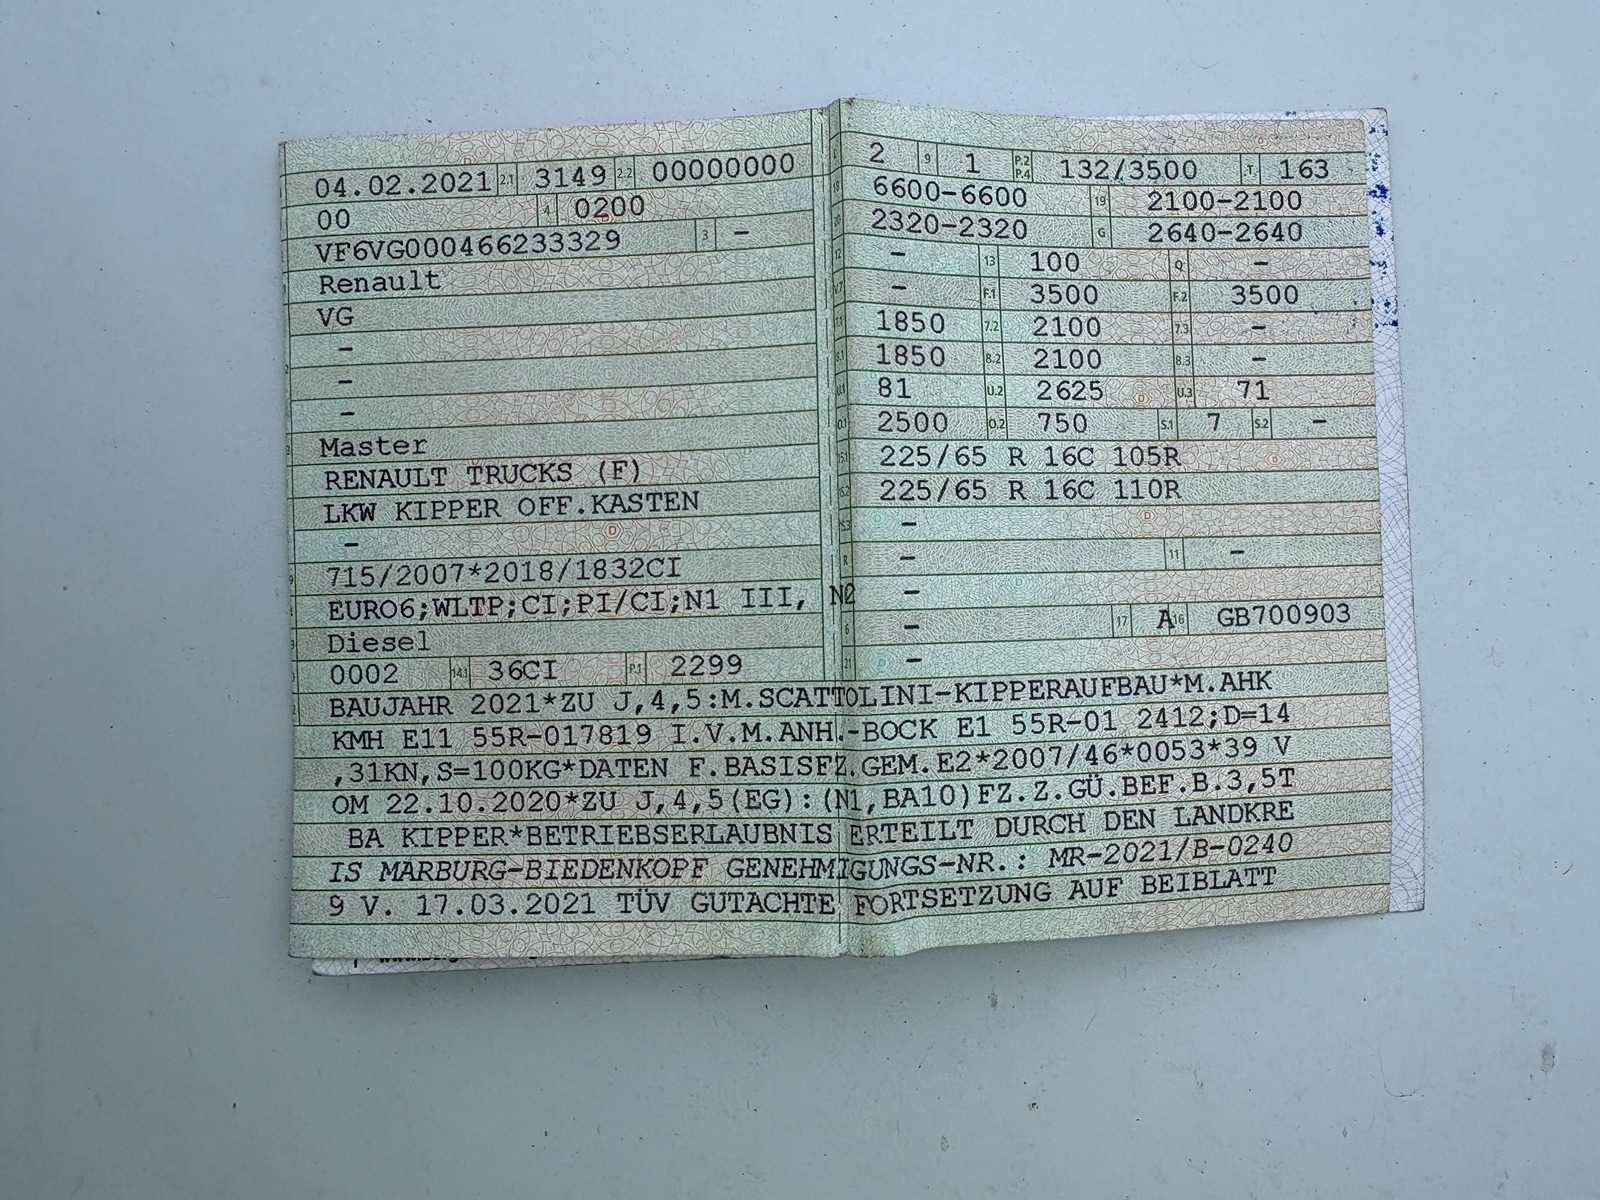 04.02.2021 2.1 3149 2.2 00000000
00 4 0200
VF6VG000466233329 3 -
Renault
VG
-
-
-
Master
RENAULT TRUCKS (F)
LKW KIPPER OFF.KASTEN
-
715/2007*2018/1832CI
EURO6;WLTP;CI;PI/CI;N1 III, N2
Diesel
0002 14.1 36CI P.1 2299
2 9 1 P.2 P.4 132/3500 T 163
18 6600-6600 19 2100-2100
20 2320-2320 G 2640-2640
12 - 13 100 Q -
V.7 - F.1 3500 F.2 3500
7.1 1850 7.2 2100 7.3 -
8.1 1850 8.2 2100 8.3 -
U.1 81 U.2 2625 U.3 71
O.1 2500 O.2 750 S.1 7 S.2 -
15.1 225/65 R 16C 105R
15.2 225/65 R 16C 110R
15.3 -
R - 11 -
-
6 - 17 A 16 GB700903
21 -
BAUJAHR 2021*ZU J,4,5:M.SCATTOLINI-KIPPERAUFBAU*M.AHK
KMH E11 55R-017819 I.V.M.ANH.-BOCK E1 55R-01 2412;D=14
,31KN,S=100KG*DATEN F.BASISFZ.GEM.E2*2007/46*0053*39 V
OM 22.10.2020*ZU J,4,5(EG):(N1,BA10)FZ.Z.GÜ.BEF.B.3,5T
BA KIPPER*BETRIEBSERLAUBNIS ERTEILT DURCH DEN LANDKRE
IS MARBURG-BIEDENKOPF GENEHMIGUNGS-NR.: MR-2021/B-0240
9 V. 17.03.2021 TÜV GUTACHTE FORTSETZUNG AUF BEIBLATT